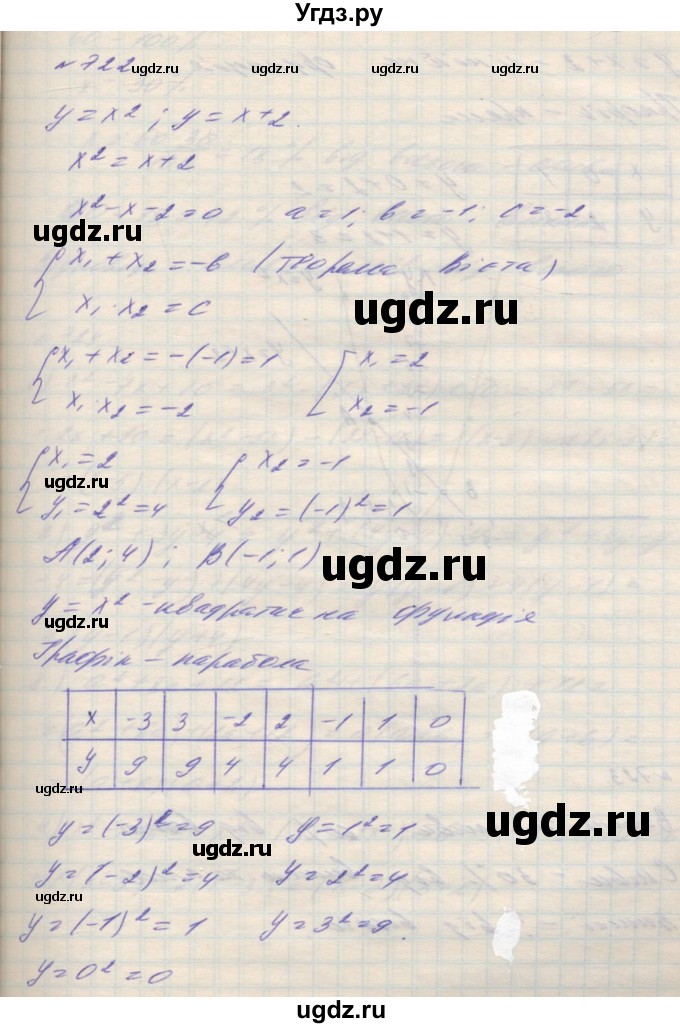 Угдз.ру
№722
ugdz.ru ugdz.ru ugdz.ru
y = x² ; y = x+2.
x² = x+2
ugdz.ru ugdz.ru
x² - x - 2 = 0 a = 1; в = -1; c = -2.
ugdz.ru
x₁ + x₂ = -в (теорема Вієта)
x₁ · x₂ = c
ugdz.ru
x₁ + x₂ = -(-1) = 1 x₁ = 2
x₁ · x₂ = -2 x₂ = -1
x₁ = 2 x₂ = -1
ugdz.ru
y₁ = 2² = 4 y₂ = (-1)² = 1
A(2; 4) ; B(-1; 1)
ugdz.ru
y = x² - квадратична функція
ugdz.ru
Графік - парабола
x -3 3 -2 2 -1 1 0
y 9 9 4 4 1 1 0
ugdz.ru
y = (-3)² = 9 y = 1² = 1
ugdz.ru
ugdz.ru
y = (-2)² = 4 y = 2² = 4
y = (-1)² = 1 y = 3² = 9.
y = 0² = 0
ugdz.ru